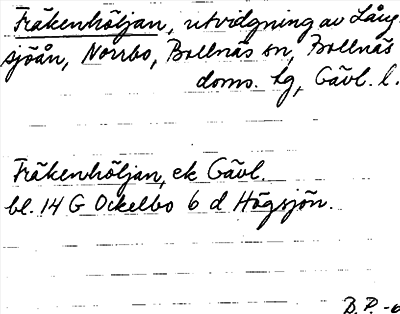 Fräkenhöljan, utvidgning av Lång-
sjöån, Norrbo, Bollnäs sn, Bollnäs
doms. lg, Gävl. l.
Fräkenhöljan, ek Gävl.
bl. 14 G Ockelbo 6 d Högsjön.
D.P.